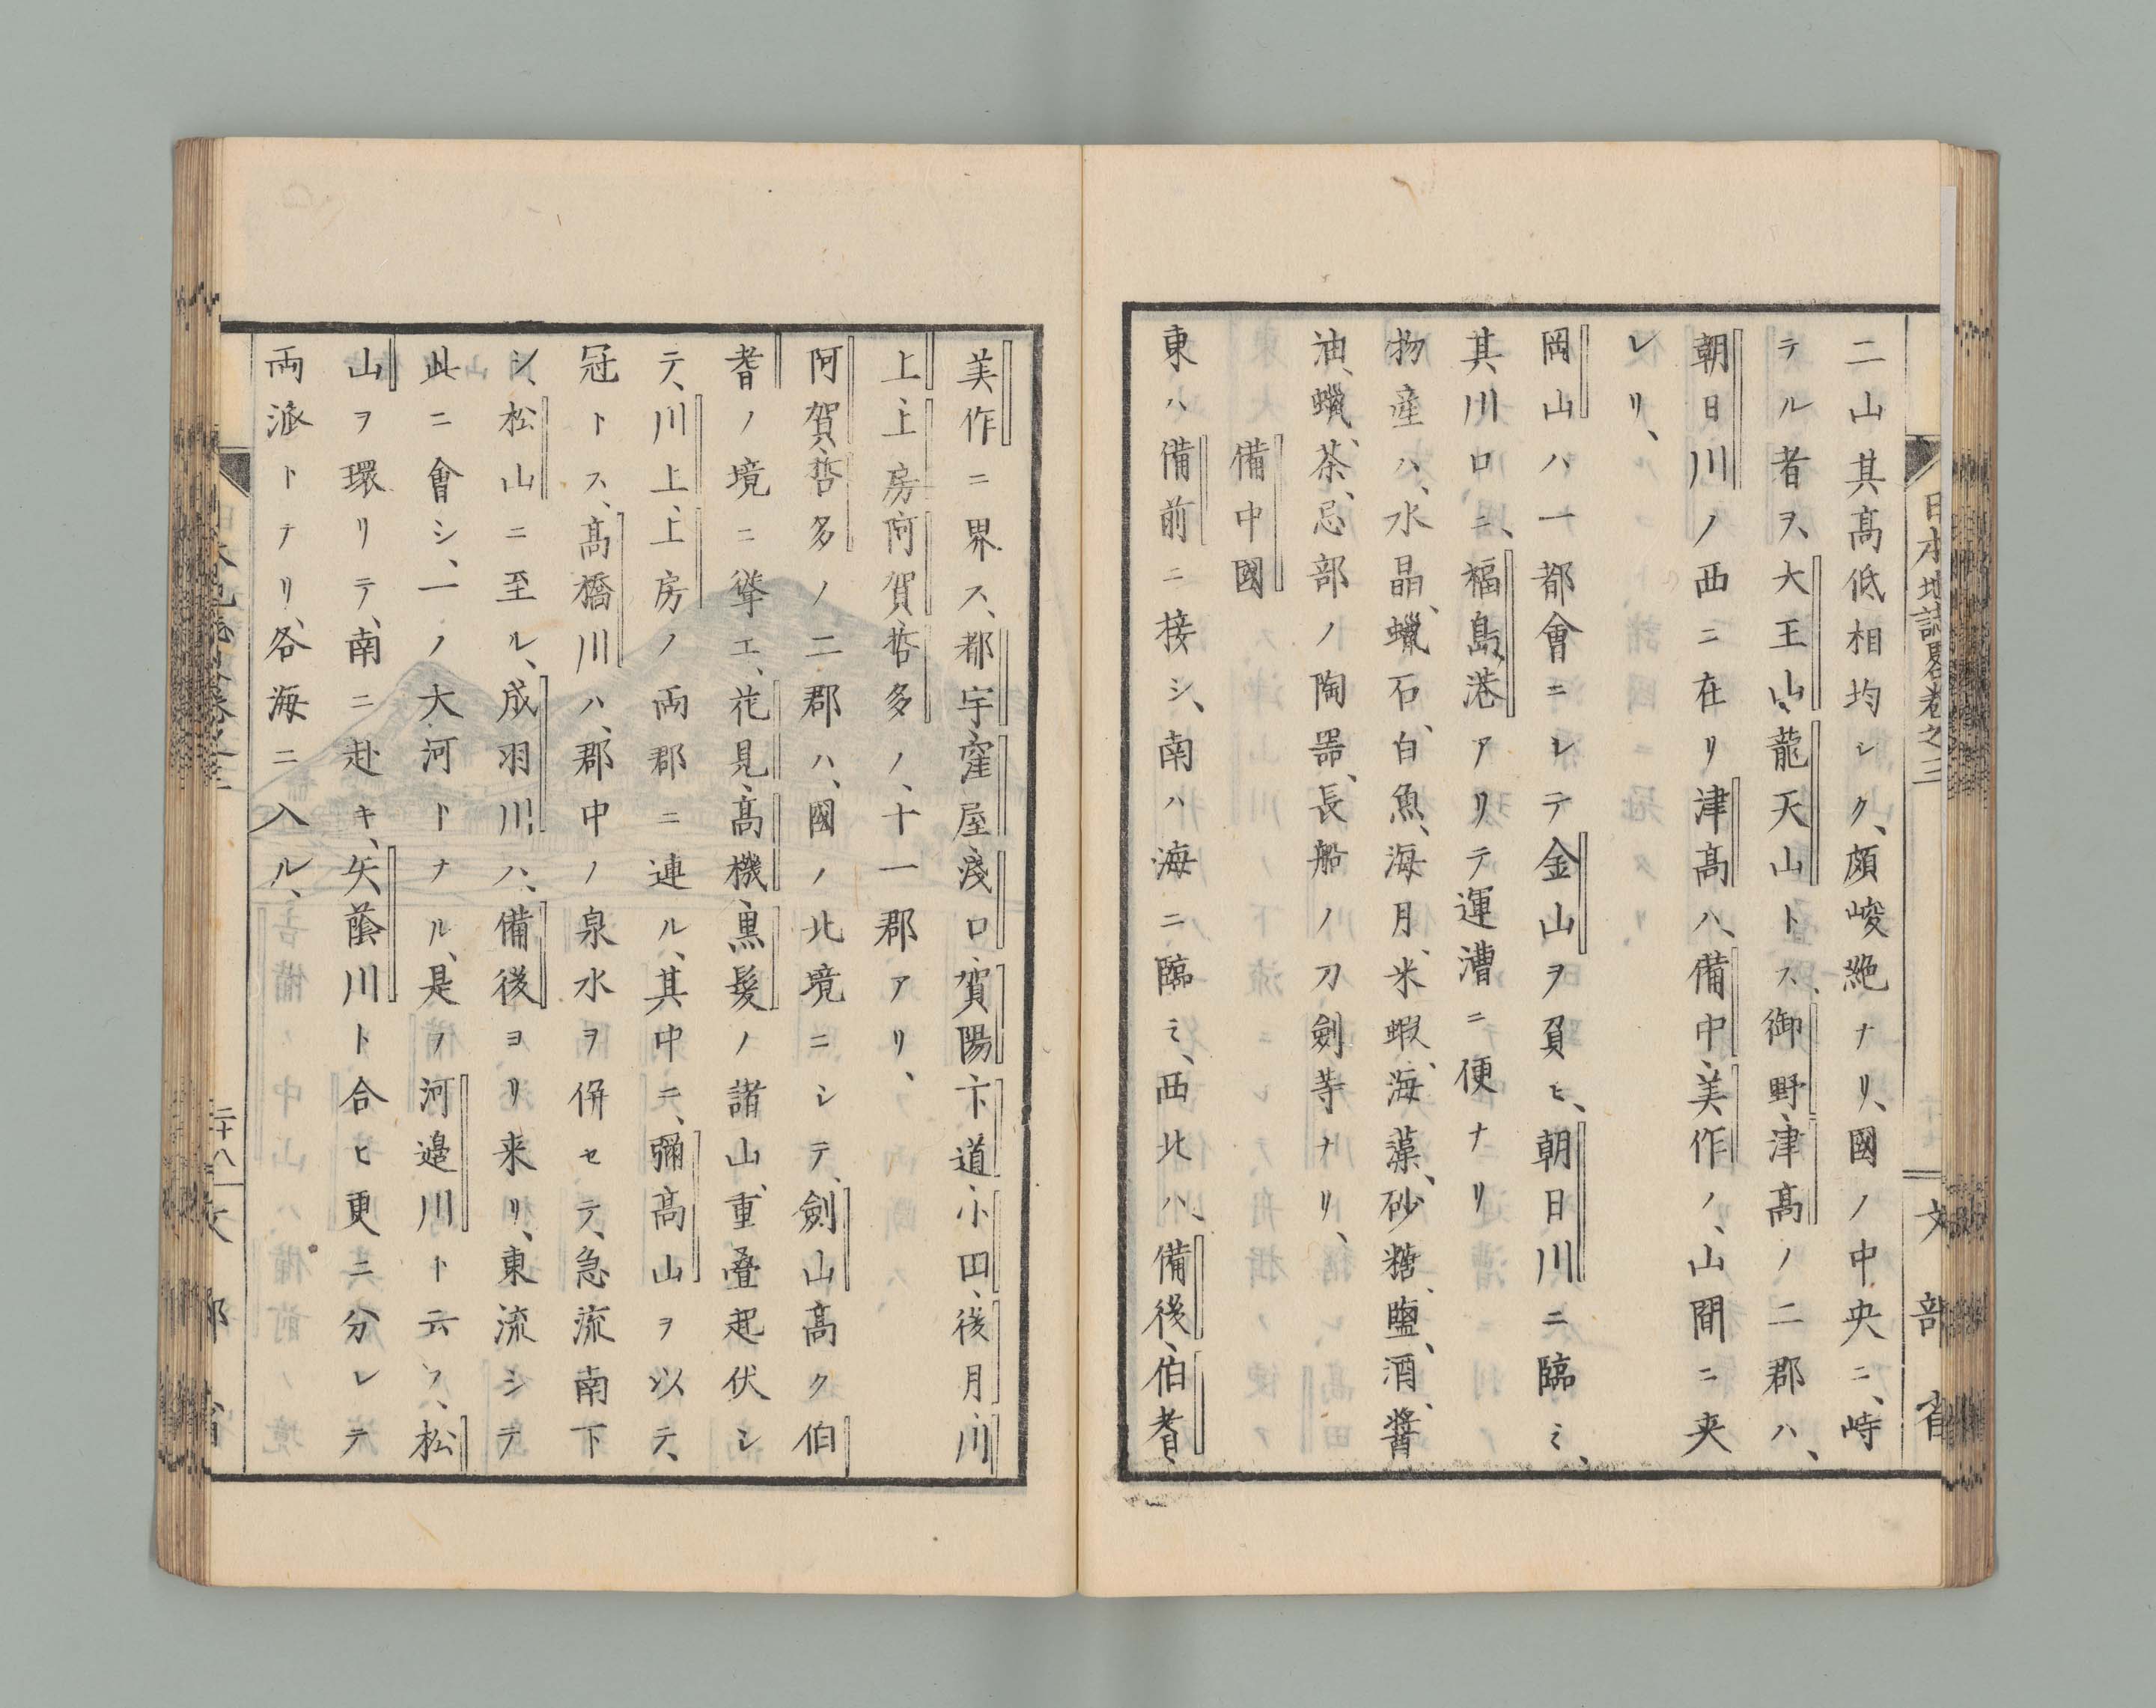 日本地誌略卷之三
文部省
二山其髙低相均シク、頗峻絶ナリ、國ノ中央ニ、峙
テル者ヲ、大王山、龍天山トス、御野、津髙ノ二郡ハ、
朝日川ノ西ニ在リ津髙ハ、備中、美作ノ、山間ニ夾
レリ、
岡山ハ一都會ニシテ金山ヲ負ヒ、朝日川ニ臨ミ、
其川口ニ、福島港アリテ運漕ニ便ナリ
物産ハ、水晶、蠟石、白魚、海月、米蝦、海藻、砂糖、鹽、酒、醬
油、蠟、茶、忌部ノ陶噐、長船ノ刀劍等ナリ、
備中國
東ハ備前ニ接シ、南ハ海ニ臨ミ、西北ハ、備後、伯耆、
美作ニ界ス、都宇、窪屋、淺口、賀陽、下道、小田、後月、川
上、上房、阿賀、哲多ノ、十一郡アリ、
阿賀、哲多ノ二郡ハ、國ノ北境ニシテ、劍山髙ク伯
耆ノ境ニ聳エ、花見、髙機、黒髪ノ諸山、重疊起伏シ
テ、川上、上房ノ両郡ニ連ル、其中ニ、彌髙山ヲ以テ、
冠トス、髙橋川ハ、郡中ノ泉水ヲ併セテ、急流南下
シ、松山ニ至ル、成羽川ハ、備後ヨリ来リ、東流シテ
此ニ會シ、一ノ大河トナル、是ヲ河邉川ト云フ、松
山ヲ環リテ、南ニ赴キ、矢蔭川ト合ヒ更ニ分レテ
両派トナリ、各海ニ入ル、
二十八